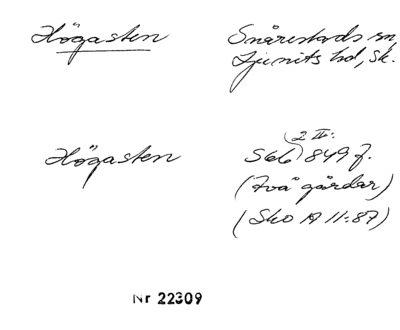 Högasten Snårestads sn,
Ljunits hd, Sk.
2 IV:
Högasten S66 849 f.
(Två gårdar)
(Sko A 11:87)
Nr 22309